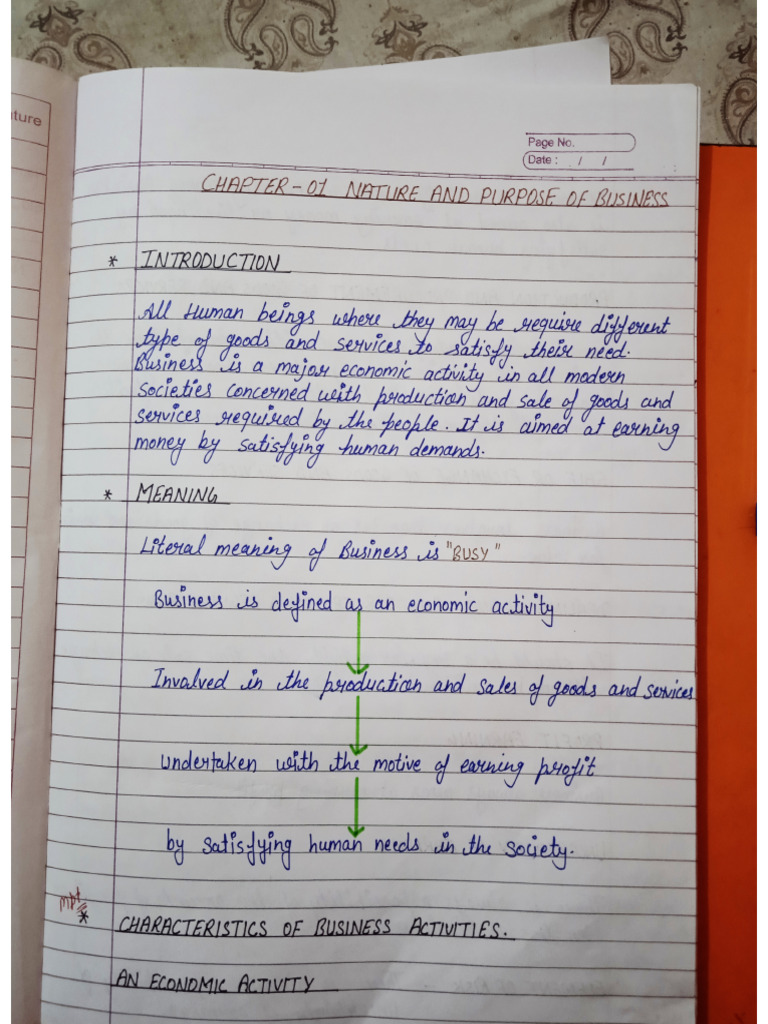 ture
Page No.
Date : / /
CHAPTER-01 NATURE AND PURPOSE OF BUSINESS
* INTRODUCTION
All Human beings where they may be require different
type of goods and services to satisfy their need.
Business is a major economic activity in all modern
societies concerned with production and sale of goods and
services required by the people. It is aimed at earning
money by satisfying human demands.
* MEANING
Literal meaning of Business is "BUSY"
Business is defined as an economic activity
Involved in the production and sales of goods and services
Undertaken with the motive of earning profit
by satisfying human needs in the society.
mpt
* CHARACTERISTICS OF BUSINESS ACTIVITIES.
AN ECONOMIC ACTIVITY